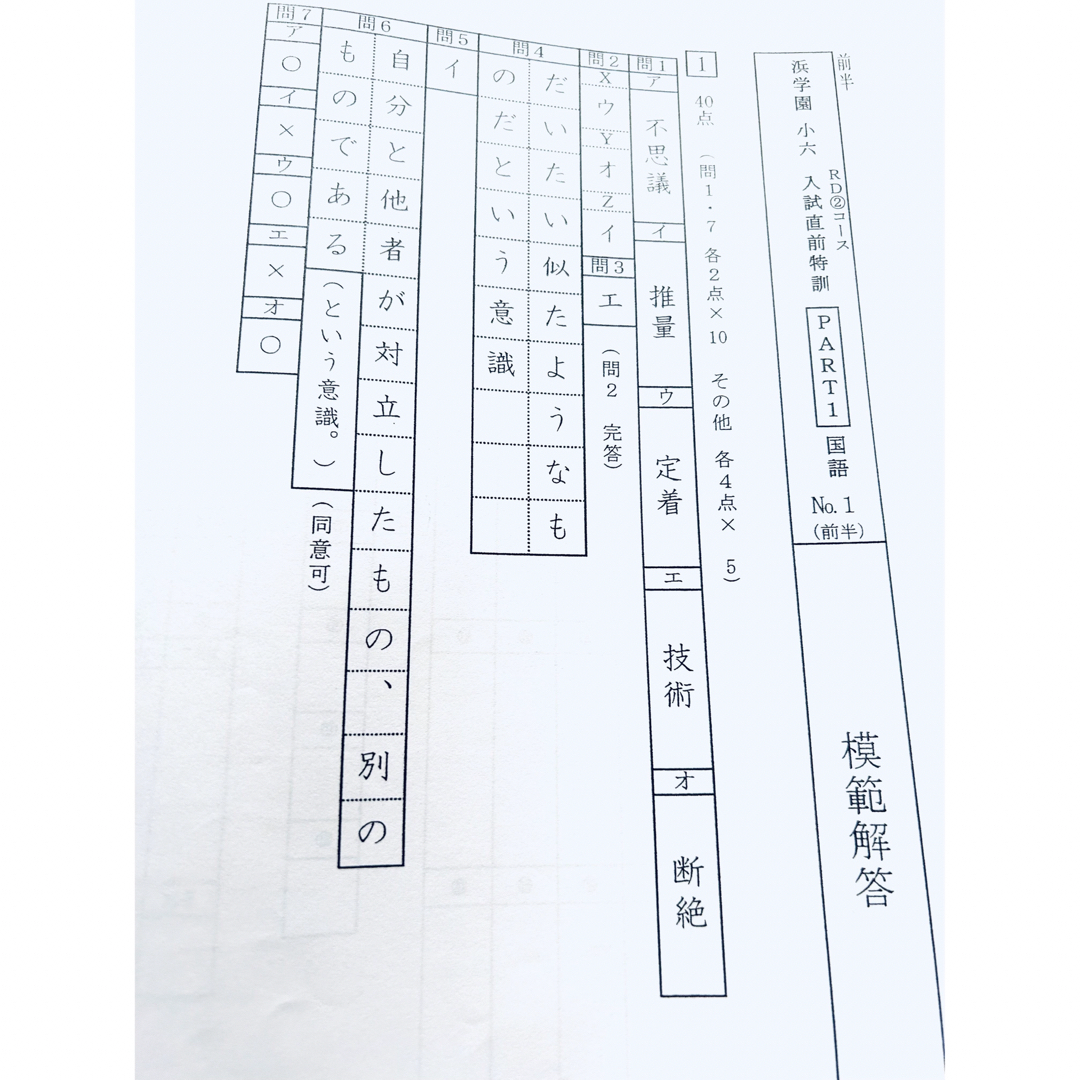 前半
RD②コース
浜学園 小六 入試直前特訓 PART1 国語 No.1 (前半)
模範解答
1 40点 (問1・7 各2点×10 その他 各4点×5)
問1 ア 不思議 イ 推量 ウ 定着 エ 技術 オ 断絶
問2 X ウ Y オ Z イ 問3 エ (問2 完答)
問4 だいたい似たようなも
のだという意識
問5 イ
問6 自分と他者が対立したもの、別の
ものである (という意識。) (同意可)
問7 ア ○ イ × ウ ○ エ × オ ○